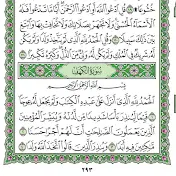 خُشُوعًا ۩ ١٠٩ قُلِ ٱدْعُوا۟ ٱللَّهَ أَوِ ٱدْعُوا۟ ٱلرَّحْمَٰنَ أَيًّا مَّا تَدْعُوا۟ فَلَهُ
ٱلْأَسْمَآءُ ٱلْحُسْنَىٰ وَلَا تَجْهَرْ بِصَلَاتِكَ وَلَا تُخَافِتْ بِهَا وَٱبْتَغِ
بَيْنَ ذَٰلِكَ سَبِيلًا ١١٠ وَقُلِ ٱلْحَمْدُ لِلَّهِ ٱلَّذِى لَمْ يَتَّخِذْ وَلَدًا وَلَمْ يَكُن
لَّهُۥ شَرِيكٌ فِى ٱلْمُلْكِ وَلَمْ يَكُن لَّهُۥ وَلِىٌّ مِّنَ ٱلذُّلِّ وَكَبِّرْهُ تَكْبِيرًۢا ١١١
سُورَةُ الْكَهْفِ
بِسْمِ ٱللَّهِ ٱلرَّحْمَٰنِ ٱلرَّحِيمِ
ٱلْحَمْدُ لِلَّهِ ٱلَّذِىٓ أَنزَلَ عَلَىٰ عَبْدِهِ ٱلْكِتَٰبَ وَلَمْ يَجْعَل لَّهُۥ عِوَجَا ١
قَيِّمًا لِّيُنذِرَ بَأْسًا شَدِيدًا مِّن لَّدُنْهُ وَيُبَشِّرَ ٱلْمُؤْمِنِينَ
ٱلَّذِينَ يَعْمَلُونَ ٱلصَّٰلِحَٰتِ أَنَّ لَهُمْ أَجْرًا حَسَنًا ٢
مَّٰكِثِينَ فِيهِ أَبَدًا ٣ وَيُنذِرَ ٱلَّذِينَ قَالُوا۟ ٱتَّخَذَ ٱللَّهُ وَلَدًا ٤
٢٩٣